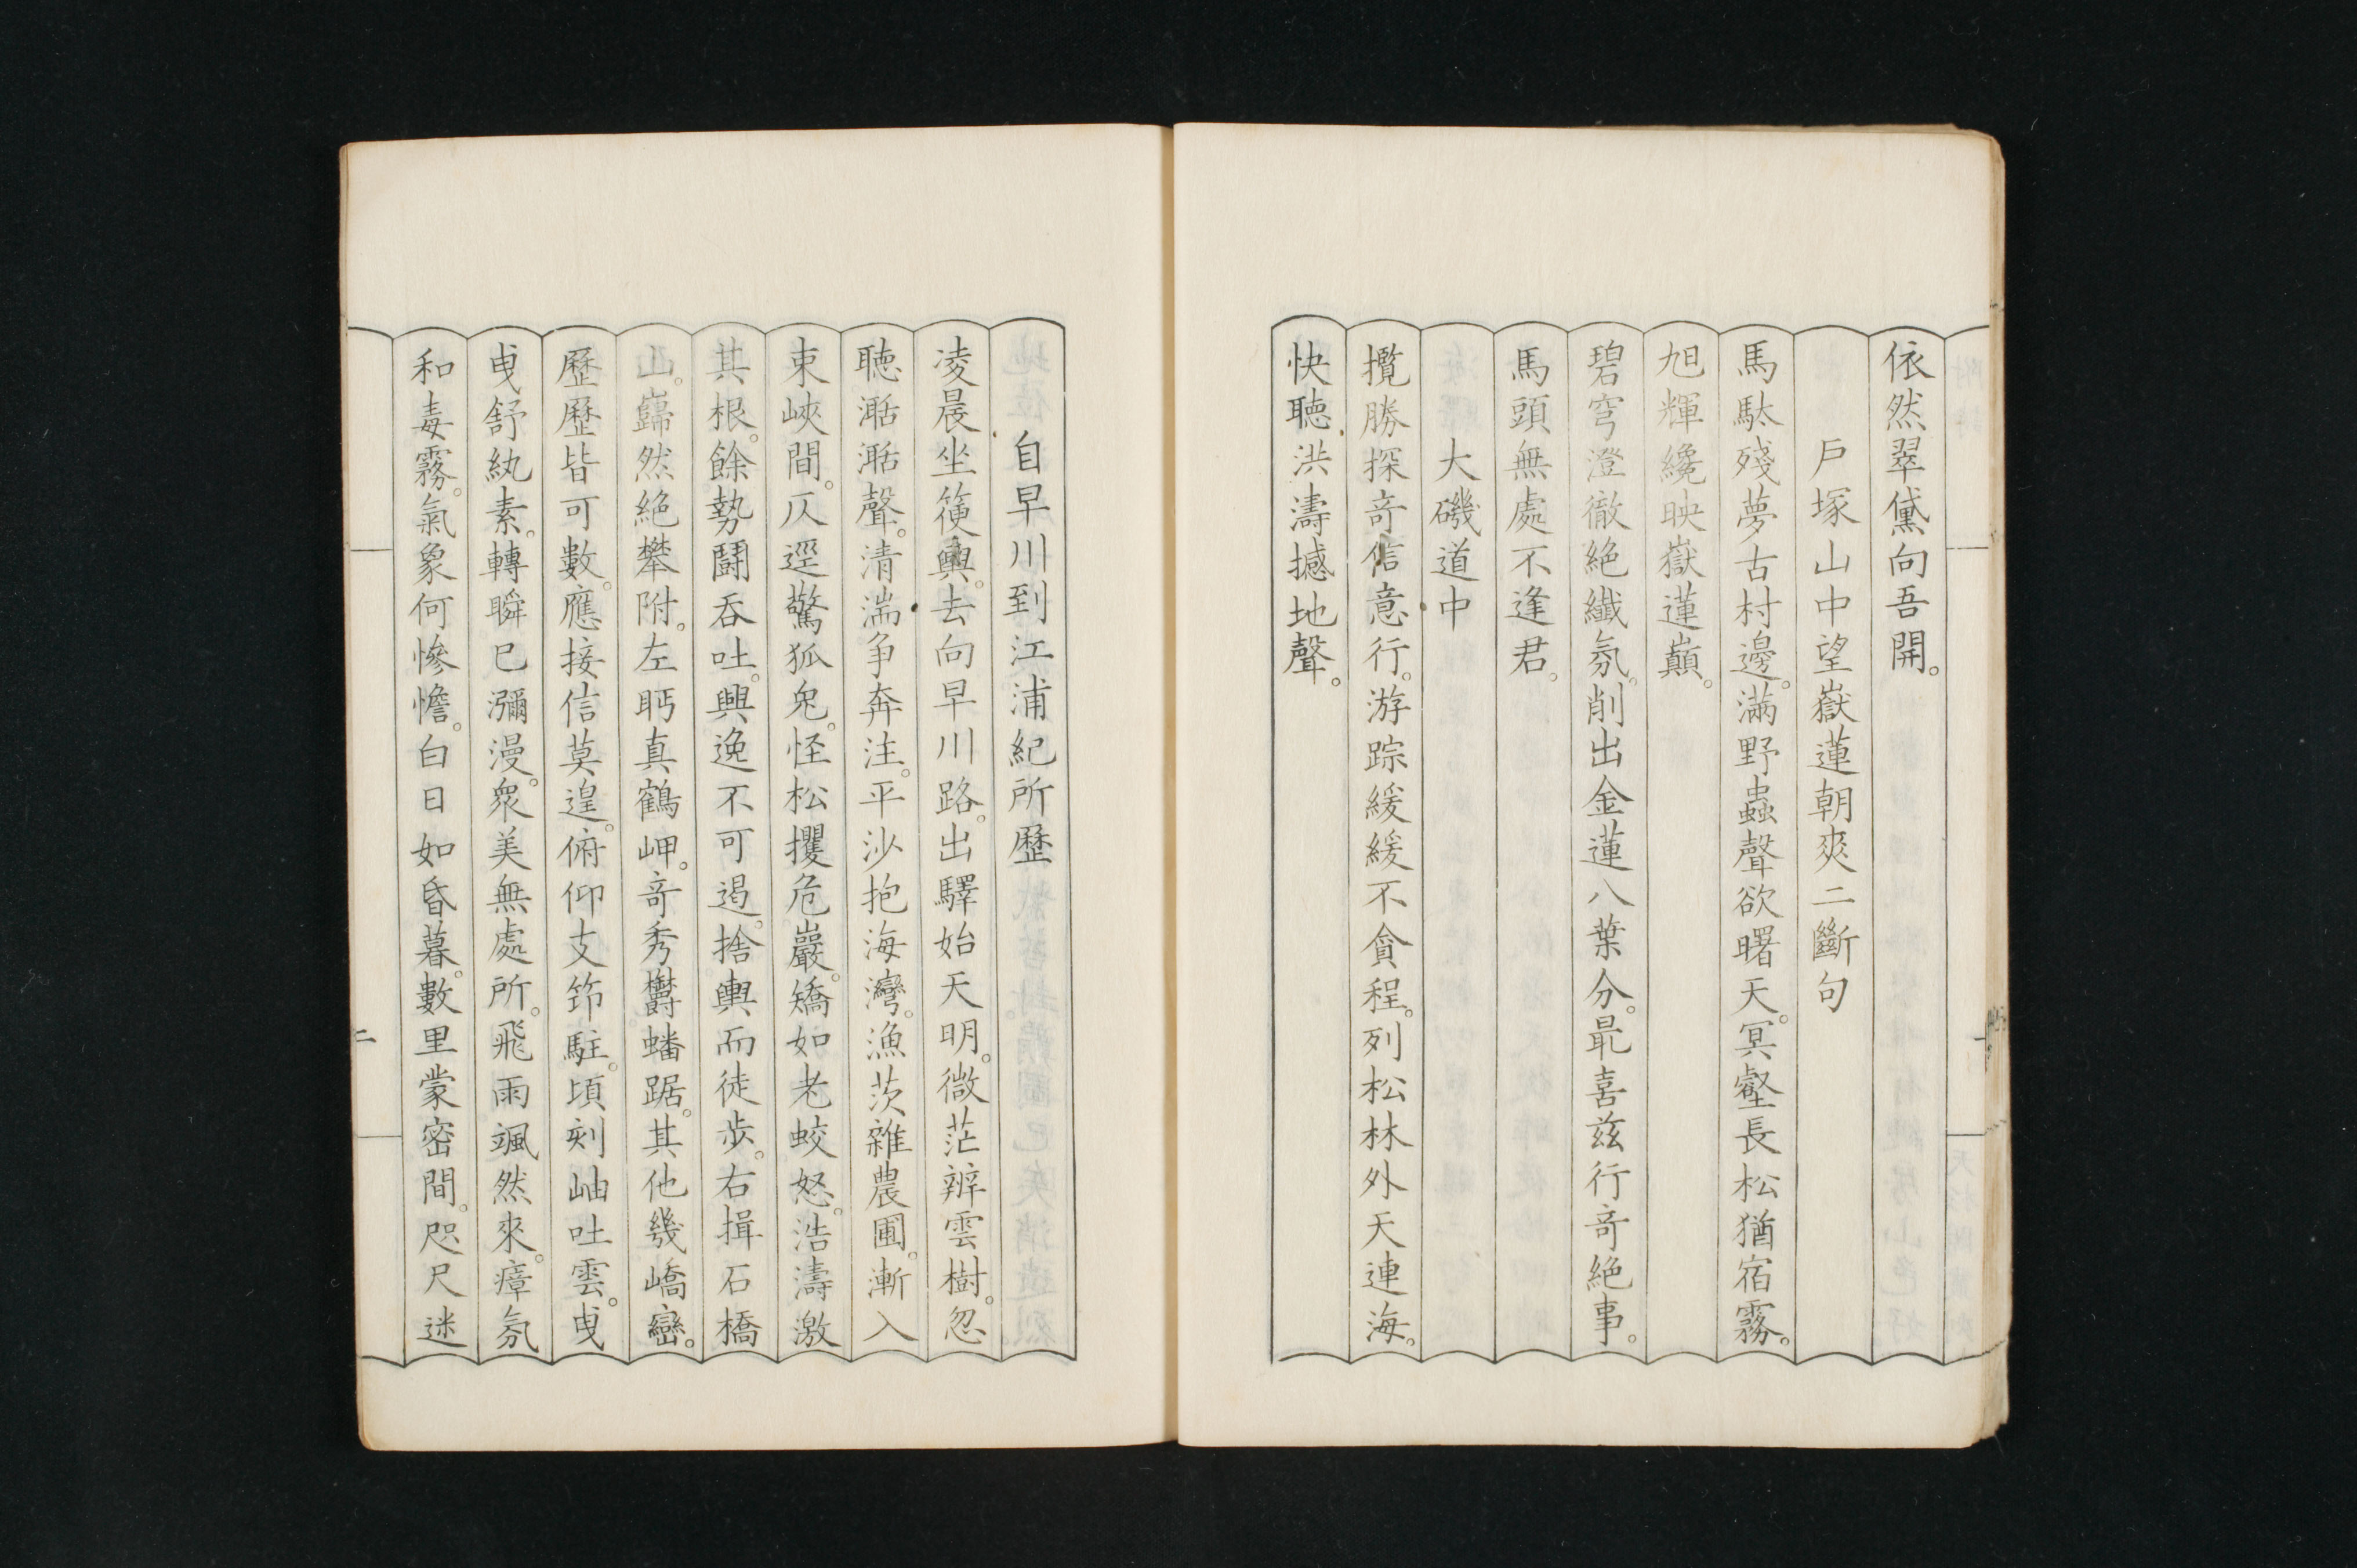 依然翠黛向吾開。
戶塚山中望嶽蓮朝爽二斷句
馬馱殘夢古村邊。滿野蟲聲欲曙天。冥壑長松猶宿霧。
旭輝纔映嶽蓮巔。
碧穹澄徹絕纖氛。削出金蓮八葉分。最喜茲行奇絕事。
馬頭無處不逢君。
大磯道中
攬勝探奇信意行。游踪緩緩不貪程。列松林外天連海。
快聽洪濤撼地聲。
自早川到江浦紀所歷
凌晨坐箯輿。去向早川路。出驛始天明。微茫辨雲樹。忽
聽湉湉聲。清湍爭奔注。平沙抱海灣。漁茨雜農圃。漸入
束峽間。仄逕驚狐兔。怪松攫危巖。矯如老蛟怒。浩濤激
其根。餘勢鬪吞吐。興逸不可遏。捨輿而徒步。右揖石橋
山。巋然絕攀附。左眄真鶴岬。奇秀欝蟠踞。其他幾嶠巒。
歷歷皆可數。應接信莫遑。俯仰支笻駐。頃刻岫吐雲。曳
曳舒紈素。轉瞬已瀰漫。眾美無處所。飛雨颯然來。瘴氛
和毒霧。氣象何慘憺。白日如昏暮。數里蒙密間。咫尺迷
二